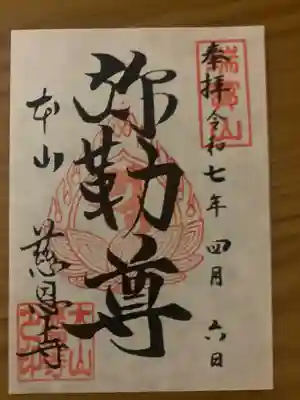 奉拝 令和七年 四月 六日
弥勒尊
本山 慈恩寺